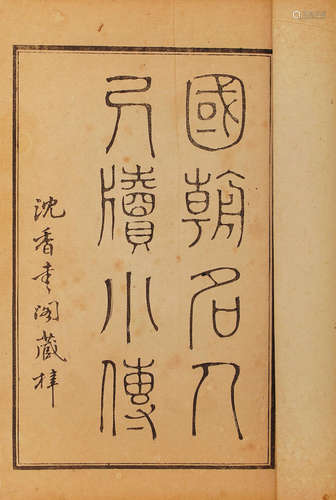 國朝名人
尺牘小傳
沈香書閣藏梓